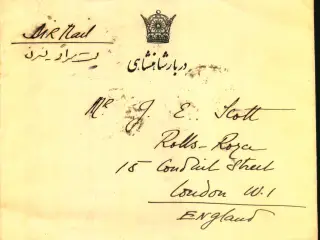 Air Mail
دربار شاهنشاهی
Mr J. E. Scott
Rolls-Royce
15 Conduit Street
London W.1
England